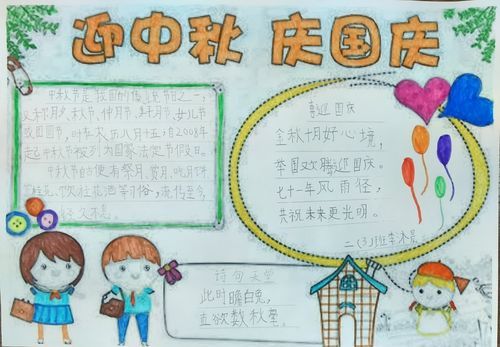 迎中秋 庆国庆
中秋节是我国的传统节日之一,
又称月夕、秋节、仲秋节、
或团圆节,时在农历八月十五;自2008年
起中秋节被列为国家法定节假日。
中秋节自古便有祭月、赏月、吃月饼
赏桂花、饮桂花酒等习俗,流传至今,
经久不息。
喜迎国庆
金秋十月好心境,
举国欢腾迎国庆。
七十一年风雨径,
共祝未来更光明。
二(3)班李
诗句天堂
此时瞻白兔,
直欲数秋毫。